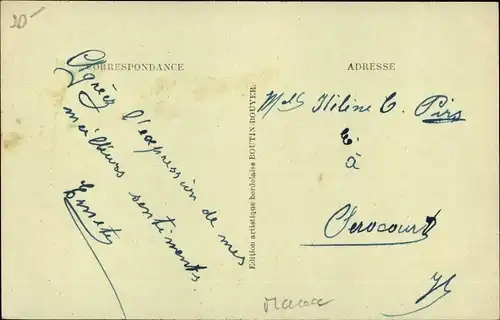 20-
CORRESPONDANCE
Agréez l'expression de mes
meilleurs sentiments.
Edition artistique bordelaise BOUTIN-BOUYER.
ADRESSE
Melle Hélène C. Pirs
à
Maroc